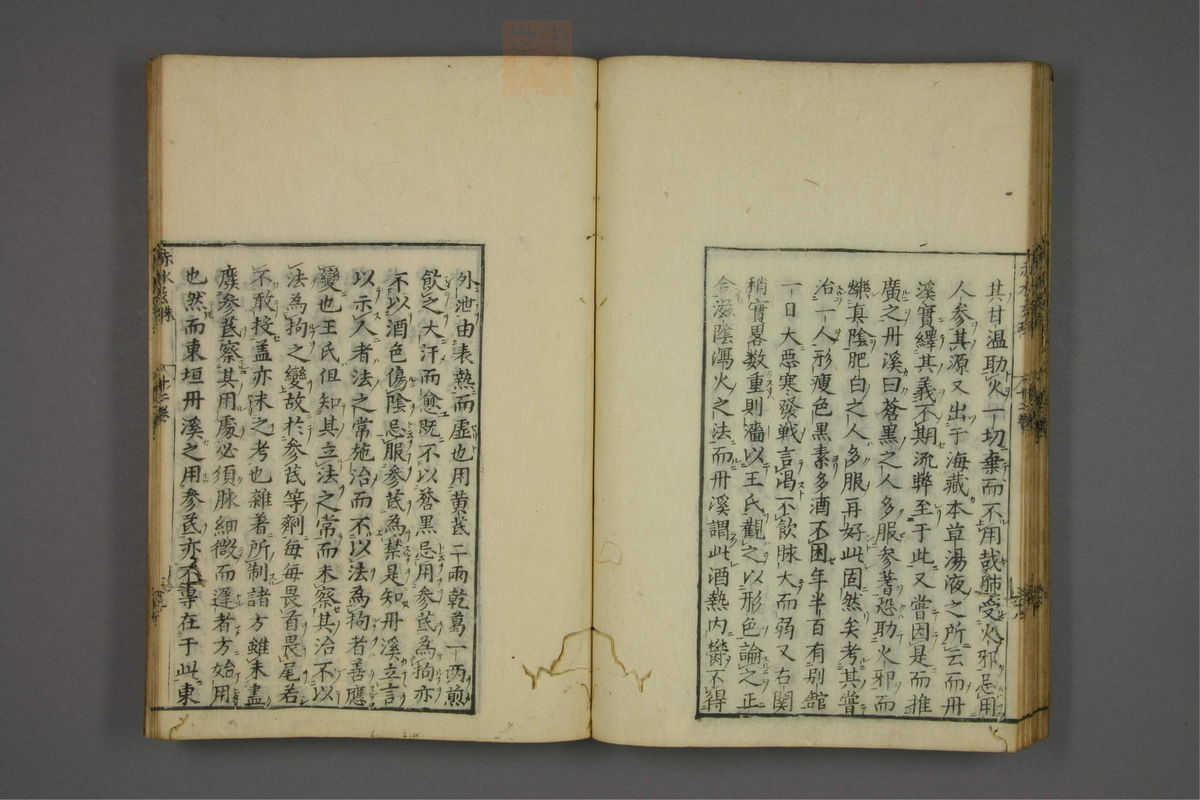 其甘温助火一切棄而不用哉肺受火邪忌用
人参其源又出于海藏本草湯液之所云而丹
溪實繹其義不期流弊至于此又嘗因是而推
廣之丹溪曰蒼黒之人多服参蓍恐助火邪而
爍真陰肥白之人多服再好此固然矣考其嘗
治一人形瘦色黒素多酒不困年半百有別館
一日大惡寒發戰言渇不飲脉大而弱又右関
稍實畧数重則濇以王氏觀之以形色論之正
合滋陰瀉火之法而丹溪謂此酒熱内欝不得
外泄由表熱而虚也用黄芪二兩乾葛一两煎
飲之大汗而愈既不以蒼黒忌用参芪為拘亦
不以酒色傷陰忌服参芪為禁是知丹溪立言
以示人者法之常施治而不以法為拘者善應
變也王氏但知其立法之常而未察其治不以
法為拘之變故於参芪等劑毎毎畏首畏尾若
不敢投盖亦未之考也雜著所制諸方雖未盡
廢参芪察其用處必須脉細微而遲者方始用
也然而東垣丹溪之用参芪亦不專在于此東
赤水玄珠
十二巻